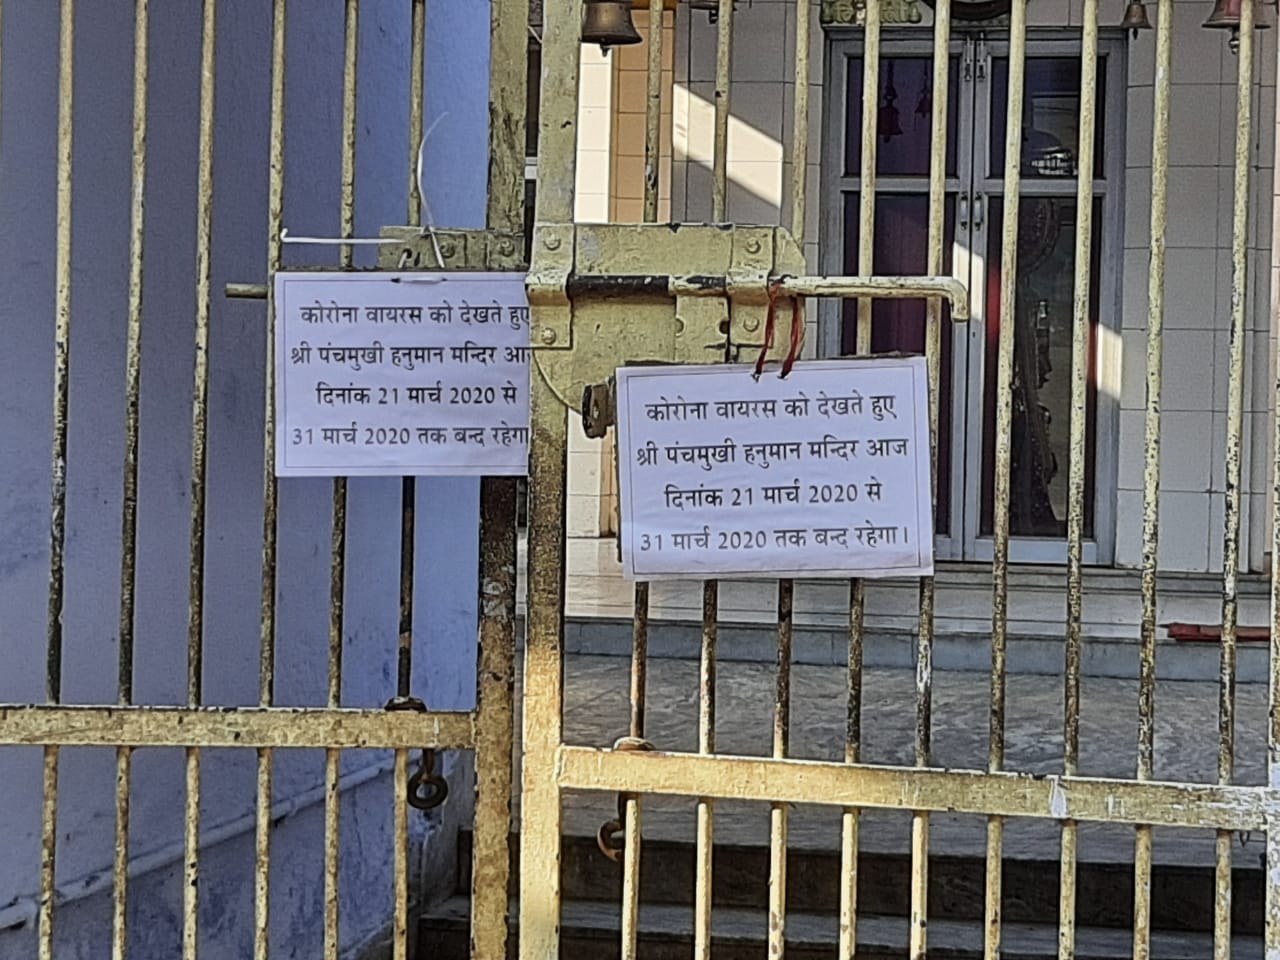 कोरोना वायरस को देखते हुए
श्री पंचमुखी हनुमान मन्दिर आज
दिनांक 21 मार्च 2020 से
31 मार्च 2020 तक बन्द रहेगा
कोरोना वायरस को देखते हुए
श्री पंचमुखी हनुमान मन्दिर आज
दिनांक 21 मार्च 2020 से
31 मार्च 2020 तक बन्द रहेगा।